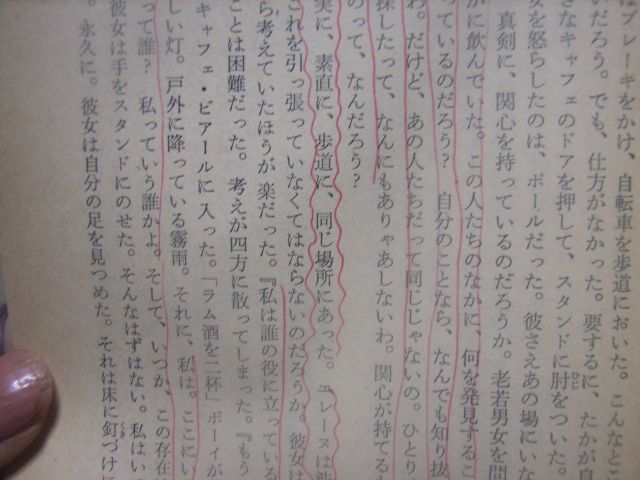 はブレーキをかけ、自転車を歩道においた。こんなとこ
いだろう。でも、仕方がなかった。要するに、たかが自
さなキャフェのドアを押して、スタンドに肘をついた。
女を怒らしたのは、ポールだった。彼さえあの場にいな
真剣に、関心を持っているのだろうか。老若男女を問
かに飲んでいた。この人たちのなかに、何を発見するこ
っているのだろう？ 自分のことなら、なんでも知り抜
わ。だけど、あの人たちだって同じじゃないの。ひとり
探したって、なんにもありゃあしないわ。関心が持てるも
のって、なんだろう？
実に、素直に、歩道に、同じ場所にあった。エレーヌは
これを引っ張っていなくてはならないのだろうか。彼女は
ら考えていたほうが楽だった。『私は誰の役に立っている
ことは困難だった。考えが四方に散ってしまった。『もう
キャフェ・ビアールに入った。「ラム酒を二杯」ボーイが
しい灯。戸外に降っている霧雨。それに、私は。ここにい
って誰？ 私っていう誰かよ。そして、いつか、この存在
彼女は手をスタンドにのせた。そんなはずはない。私はい
。永久に。彼女は自分の足を見つめた。それは床に釘づけに